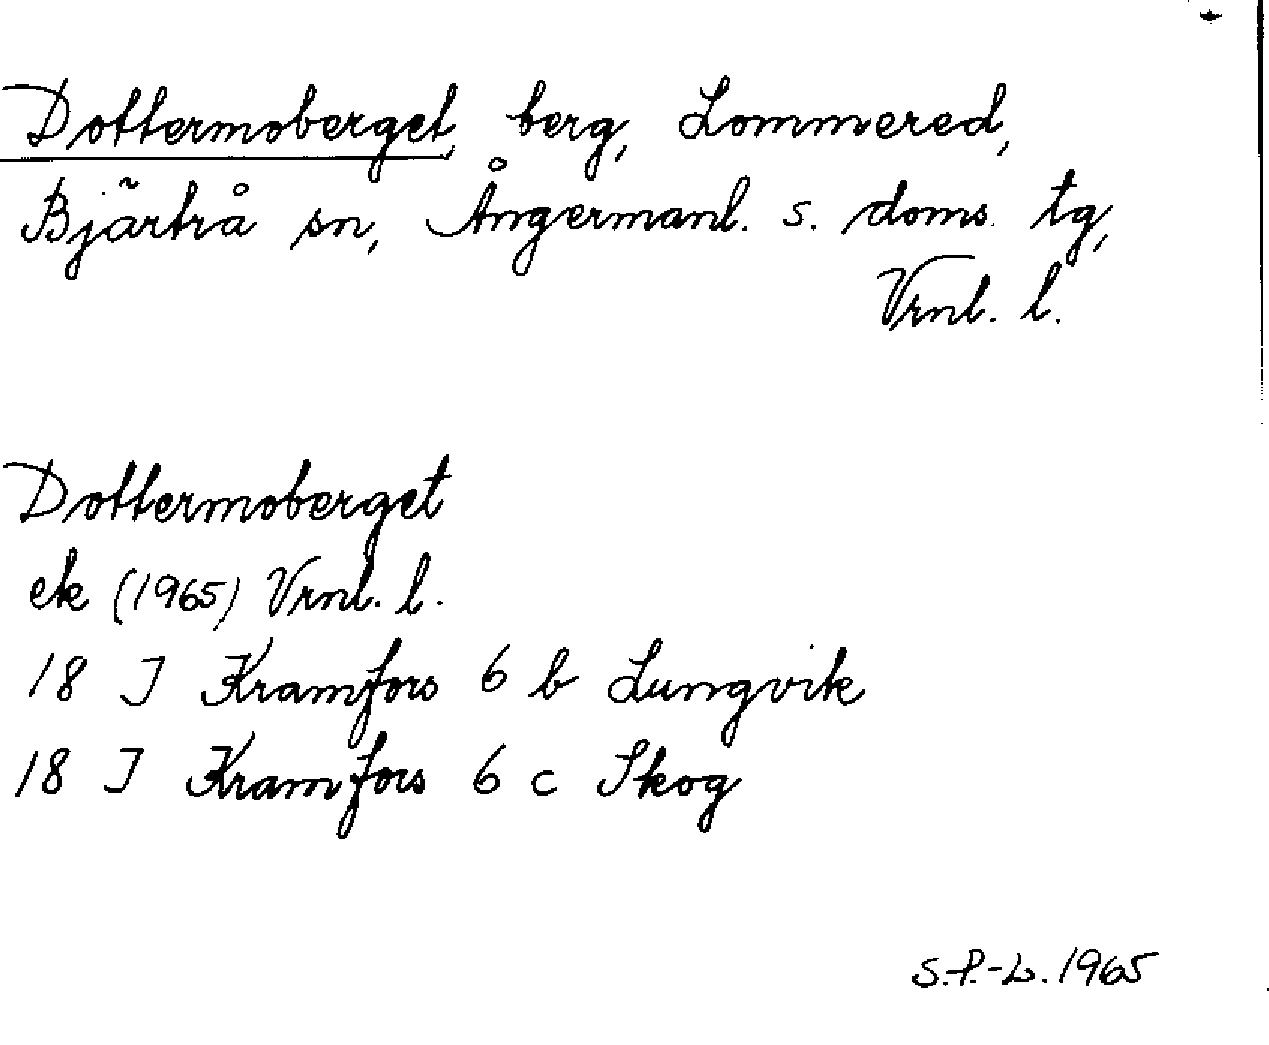 Dottermoberget, berg, Lommered,
Bjärtrå sn, Ångermanl. s. doms. tg,
Vrnl. l.
Dottermoberget
ek (1965) Vrnl. l.
18 J Kramfors 6 b Lungvik
18 J Kramfors 6 c Skog
S.-P.-L. 1965